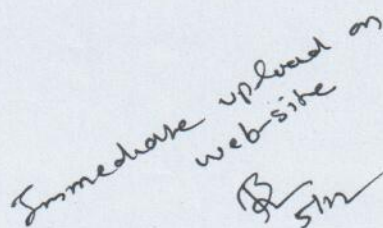 Immediate upload on
web-site
5/12